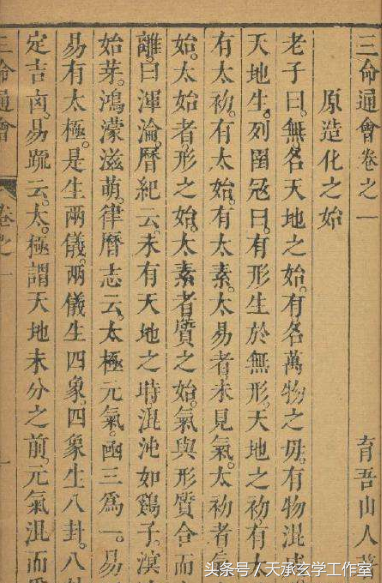 三命通會卷之一 育吾山人著
原造化之始
老子曰。無名天地之始。有名萬物之母。有物混成
天地生。列圄冦曰。有形生於無形。天地之初有太
有太初。有太始。有太素。太易者未見氣。太初者
始。太始者形之始。太素者質之始。氣與形質合而
離曰渾淪。曆紀云。未有天地之時混沌如鷄子。溟
始芽。鴻濛滋萌。律曆志云。太極元氣。函三爲一。易
易有太極。是生兩儀。兩儀生四象。四象生八卦。八
定吉凶。易䟽云。太極謂天地未分之前。元氣混而
三命通會 卷之一 一
头条号 / 天承玄学工作室